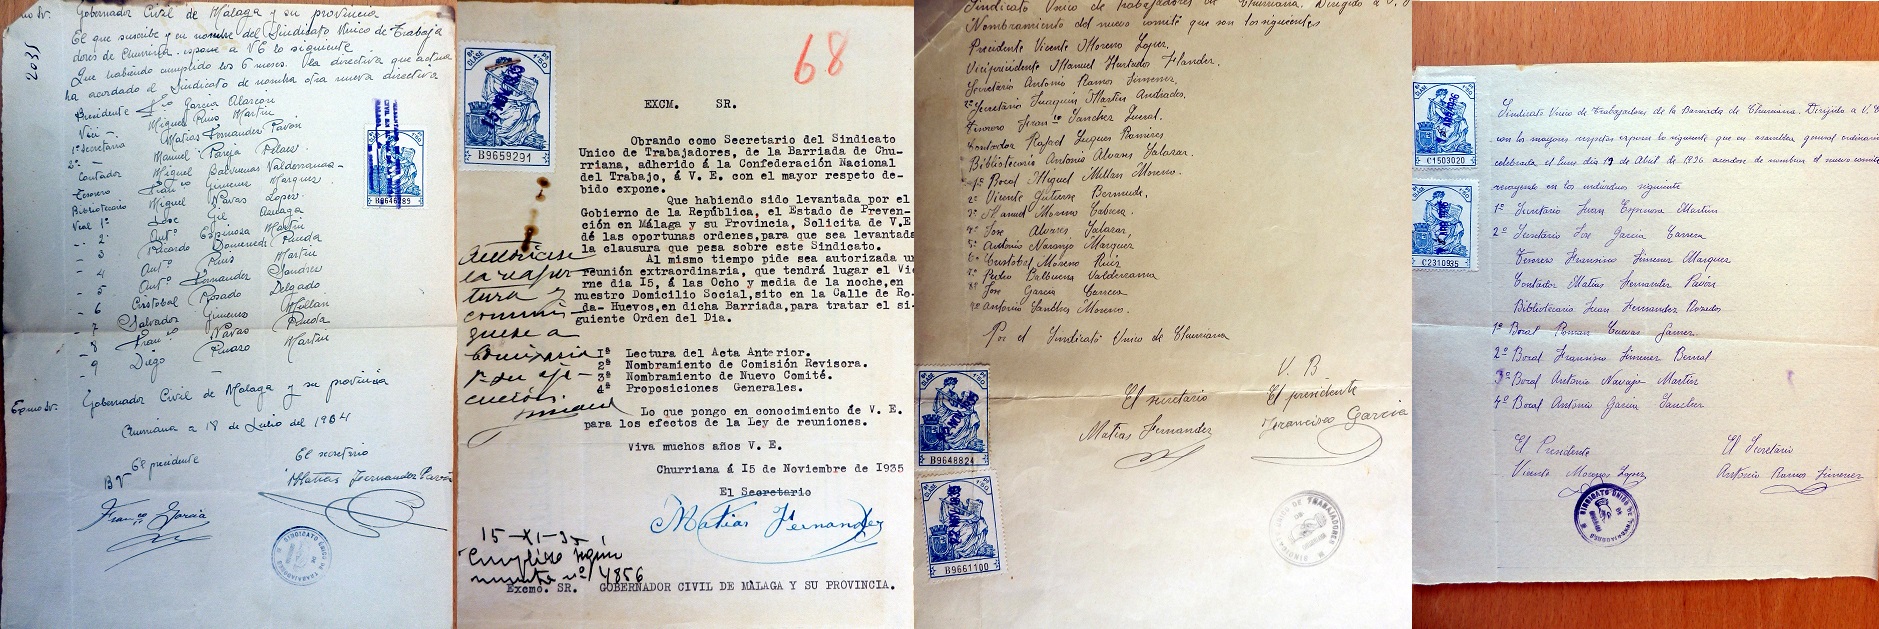 Exmo Sr.
Gobernador Civil de Malaga y su provincia
El que suscribe y en nombre del Sindicato Unico de Trabaja
dores de Churriana. espone a VE lo siguiente
Que habiendo cumplido los 6 meses. la directiva que actua
ha acordado el Sindicato de nombra otra nueva directiva
2035
Presidente Fco Garcia Alarcón
Vici - Miguel Pino Martin
1º Secretario Matias Fernandez Pavón
2º - Manuel Pareja
Contador Miguel Balbuenas Valderrama -
Tesorero Franco Gimenez Marquez
Bibliotecario Miguel Navas Lopez
Vocal 1º Jose Gil
- 2º Antº Espinosa Martin
- 3 Ricardo Pineda
- 4 Antº Pino Martin
- 5 Antº Fernandez
- 6 Cristobal Rosado Delgado
- 7 Salvador Gimenez Millan
- 8 Franco Navas Pineda
- 9 Diego Martin
Exmo Sr. Gobernador Civil de Malaga y su provincia
Churriana a 18 de Julio del 1934
El presidente
El secretario
Matias Fernandez Pavón
Franco Garcia
SINDICATO UNICO DE TRABAJADORES
68
8ª CLASE 1'50 Pts
15 NOV 1935
B9659291
EXCM. SR.
Obrando como Secretario del Sindicato
Unico de Trabajadores, de la Barriada de Chu-
rriana, adherido á la Confederación Nacional
del Trabajo, á V. E. con el mayor respeto de-
bido expone.
Que habiendo sido levantada por el
Gobierno de la República, el Estado de Preven-
ción en Málaga y su Provincia, Solicita de V.E
dé las oportunas ordenes,para que sea levantada
la clausura que pesa sobre este Sindicato.
Al mismo tiempo pide sea autorizada un
reunión extraordinaria, que tendrá lugar el Vie
rne dia I5, á las Ocho y media de la noche,en
nuestro Domicilio Social,sito en la Calle de Ro-
da- Huevos,en dicha Barriada,para tratar el si-
guiente Orden del Dia.
Autoricese
la reaper
tura y
comuni
quese a
Comisaria
1ª Lectura del Acta Anterior.
2ª Nombramiento de Comisión Revisora.
3ª Nombramiento de Nuevo Comité.
4ª Proposiciones Generales.
Lo que pongo en conocimiento de V. E.
para los efectos de la Ley de reuniones.
Viva muchos años V. E.
Churriana á I5 de Noviembre de I935
El Secretario
Matias Fernandez
15-XI-35
Cumplido según
minuta nº 4856
Excmo. SR. GOBERNADOR CIVIL DE MALAGA Y SU PROVINCIA.
Sindicato Unico de Trabajadores de Churriana. Dirigido a V.
Nombramiento del nuevo comité que son los siguientes
Precidente Vicente Moreno Lopez.
Viciprecidente Manuel Hurtados Flander.
Secretario Antonio Ramos Jimenez
2º Secretario Juaquin Martin Andrades.
Tesorero Franco Sanchez
Contador Rafael Luques Ramires
Bibliotecario Antonio Alvares Salazar.
1º Bocal Miguel Millan Moreno.
2º Vicente Gutierre Bermuda.
3º Manuel Moreno Cabrera.
4º Jose Alvares Salazar,
5º Antonio Naranjo Marquez
6º Cristobal Moreno Ruiz
7º Pedro Balbuena Valderrama
8º Jose Garcia Garcia
9º Antonio Sanches Moreno.
Por el Sindicato Unico de Churriana
V. B
El secretario
El precidente
Matias Fernandez
Francisco Garcia
B9648824
B9661100
C1503020
C2310935
Sindicato Unico de Trabajadores de la Barriada de Churriana. Dirigido a V. E
con los mayores respetos expone lo siguiente que en asamblea general ordinaria
celebrada el lunes dia 19 de Abril de 1936 acordose de nombrar el nuevo comite
recayendo en los individuos siguiente
1º Secretario Juan Espinosa Martin
2º Secretario Jose Garcia Carrera
Tesorero Francisco Jimenez Marquez
Contador Matias Fernandez Pavón
Bibliotecario Juan Fernandez Rosados
1º Bocal Roman Cuevas Gamez
2º Bocal Francisco Jimenez Bernal
3º Bocal Antonio Navaja Martin
4º Bocal Antonio Garcia Sanchez
El Presidente
El Secretario
Vicente Moreno Lopez
Antonio Ramos Jimenez
SINDICATO UNICO DE TRABAJADORES